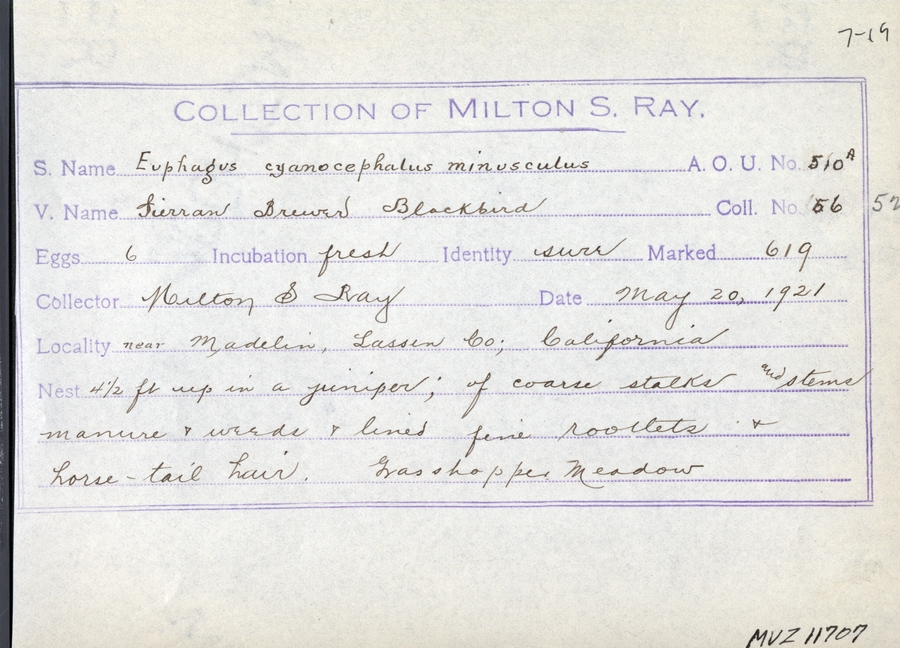 7-19
COLLECTION OF MILTON S. RAY.
S. Name Euphagus cyanocephalus minusculus A. O. U. No. 510A
V. Name Sierran Brewer Blackbird Coll. No. 56 52
Eggs 6 Incubation fresh Identity sure Marked 619
Collector Milton S Ray Date May 20, 1921
Locality near Madelin, Lassen Co; California
Nest 4½ ft up in a juniper; of coarse stalks and stems
manure & weeds & lined fine rootlets &
horse-tail hair. Grasshopper Meadow
MVZ 11707